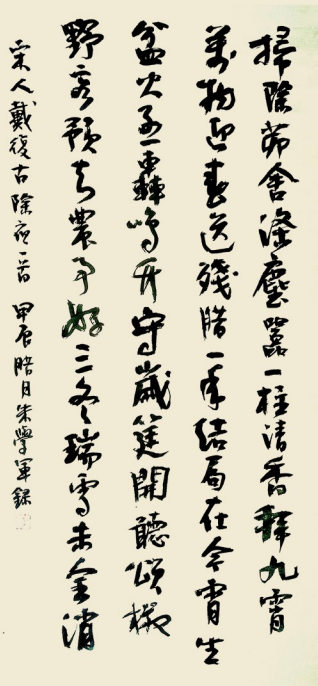 掃除茅舍滌塵囂一炷清香拜九霄
萬物迎春送殘腊一年結局在今宵生
盆火烈轟鳴竹守歲筵開聽頌椒
野客預知農事好三冬瑞雪未全消
宋人戴復古除夜一首 甲辰腊月朱學軍錄